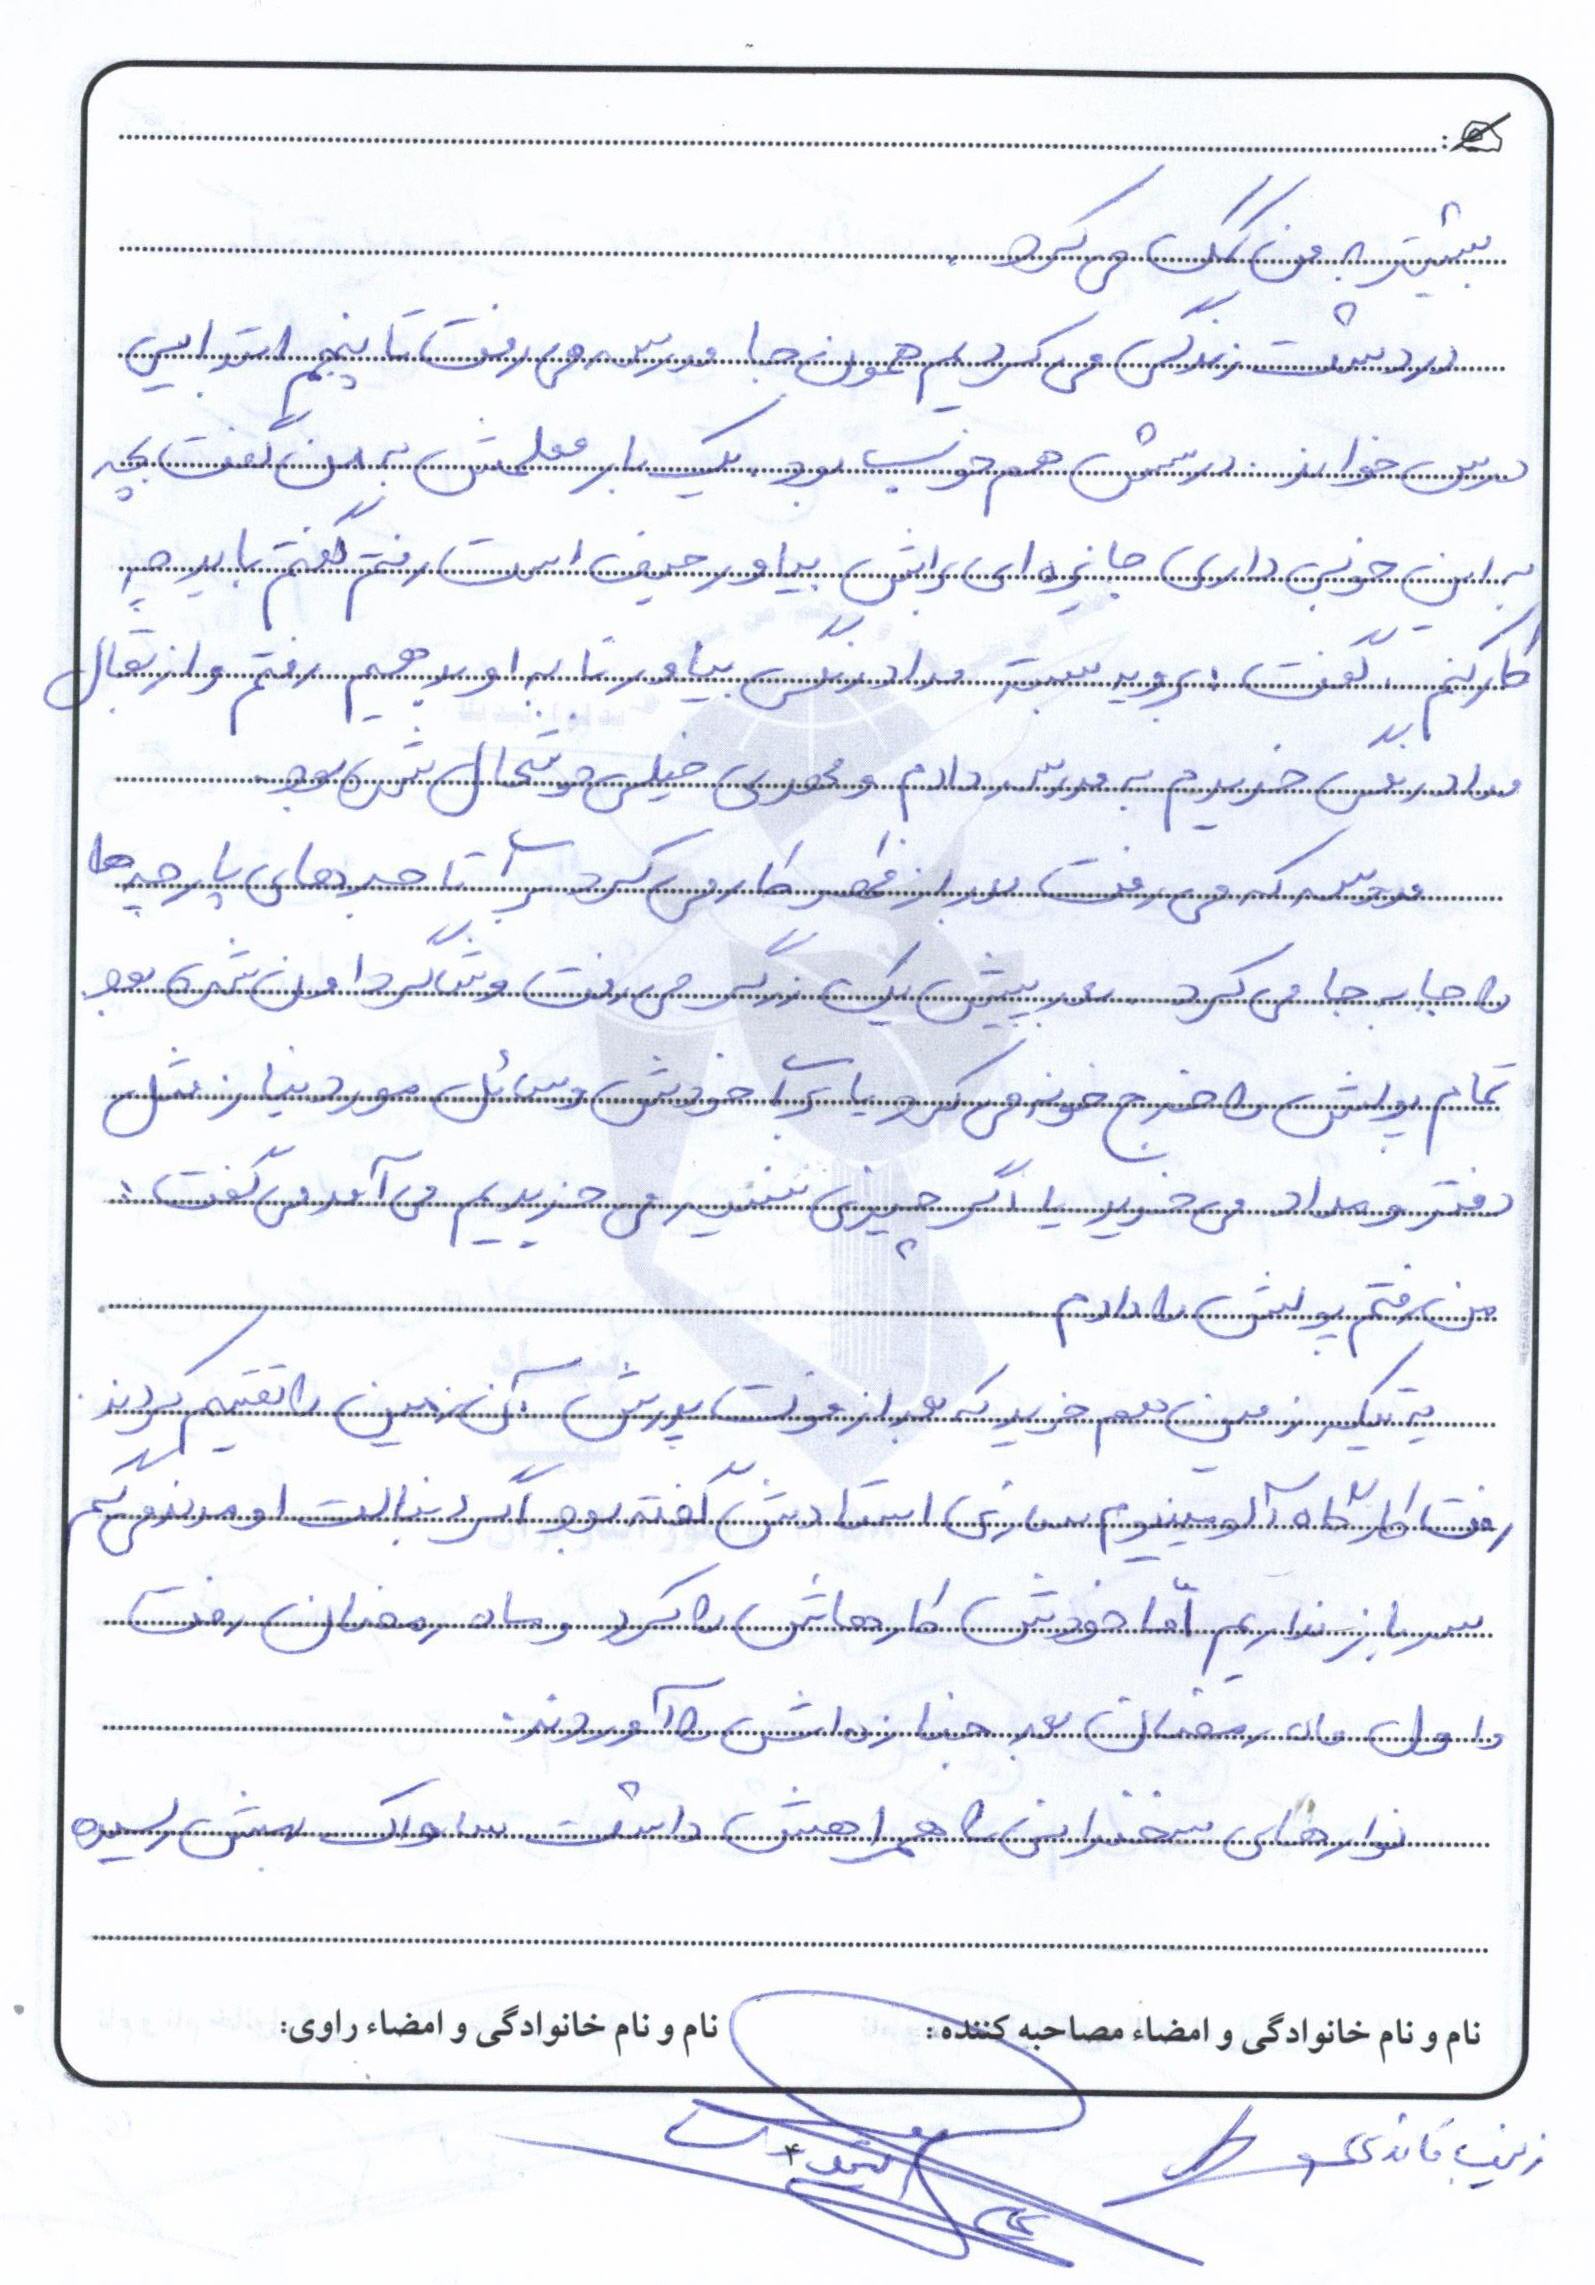 بیشتر به من کمک می کرد.
در دشت زندگی می کردیم همون جا مدرسه می رفت تا پنجم ابتدایی
درس خواند. درسش هم خوب بود. یک بار معلمش به من گفت بچه
به این خوبی داری جایزه ای براش بیاور حیف است رفتم گفتم باید چه
کار کنم. گفت: بروید بسته مداد رنگی بیاور تا به او بدهیم رفتم و از بقال
مداد رنگی خریدم به مدرسه دادم و مهدی خیلی خوشحال شده بود.
مدرسه که می رفت بعد از ظهر کار می کرد تا پارچه ها
را جا به جا می کرد. بعد پیش یک زرگر می رفت و شاگرد اون شده بود.
تمام پولش را خرج خونه می کرد یا برا خودش وسائل مورد نیاز مثل
دفتر و مداد می خرید یا اگر چیزی نسیه می خریدیم می آمد می گفت:
من رفتم پولش را دادم
یه تیکه زمین هم خرید که بعد از فوت پدرش آن زمین را تقسیم کردند.
رفت کارگاه آلومینیوم سازی استادش گفته بود اگر دنبالت اومدند می گم
سرباز نداریم امّا خودش کارهاش را کرد و ماه رمضان رفت
و اول ماه رمضان بعد جنازه اش را آوردند.
نوارهای سخنرانی را همراهش داشت ساواک بهش رسیده
نام و نام خانوادگی و امضاء مصاحبه کننده: نام و نام خانوادگی و امضاء راوی:
زینب
۴